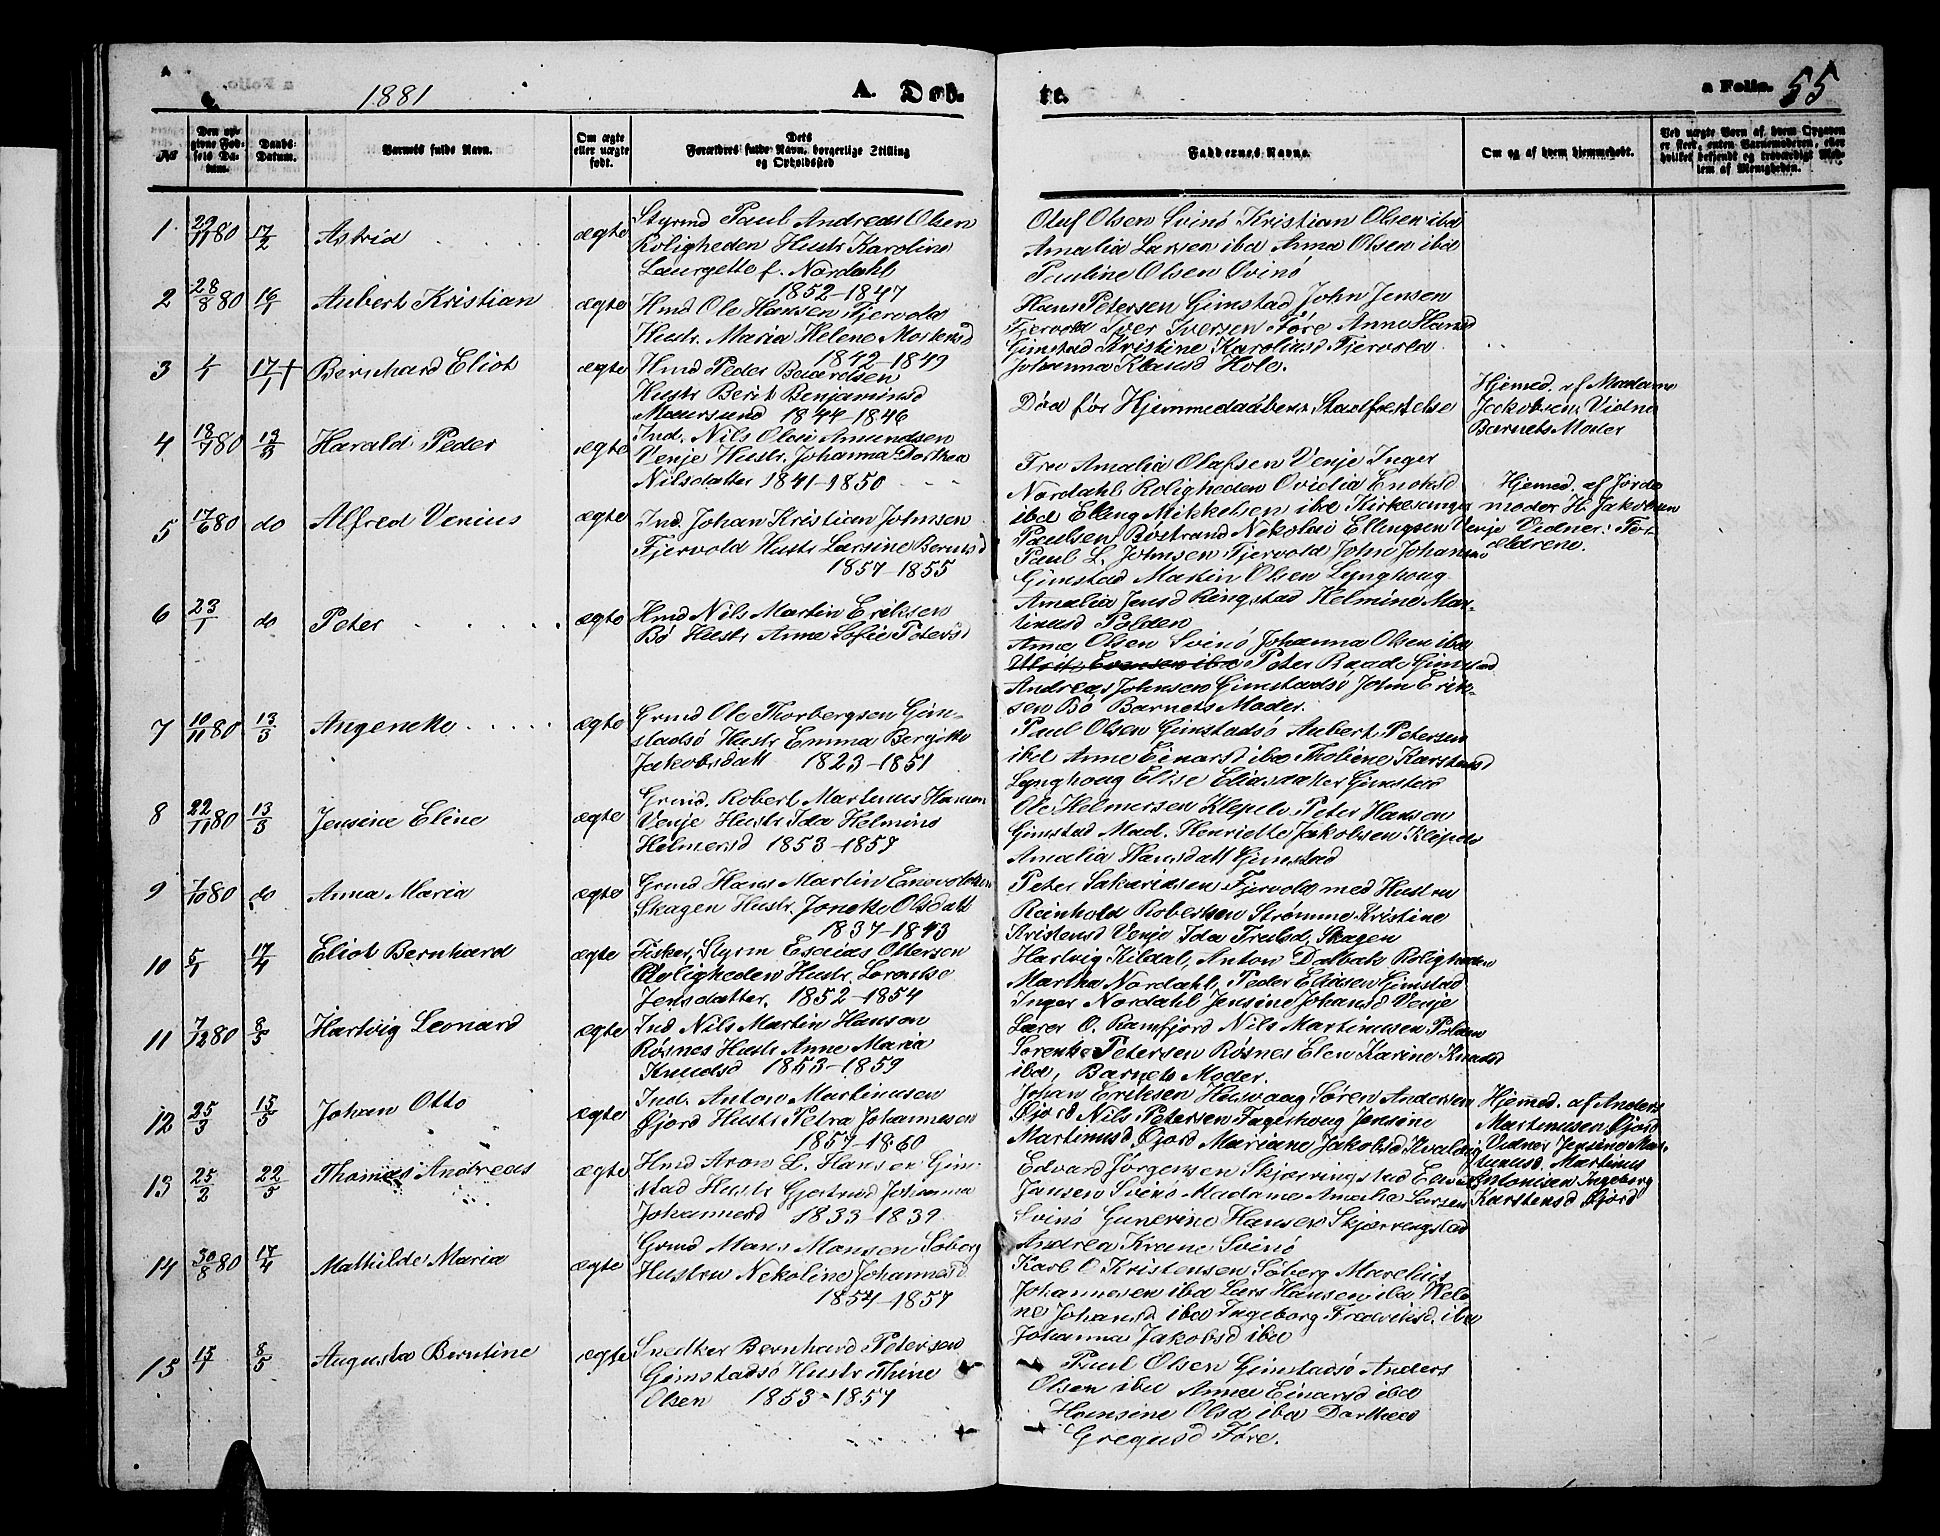 1881
A. Døb-
te.
a Folio. 55
No
Den opgivne Fødsels Datum.
Daabs-Datum.
Barnets fulde Navn.
Om ægte eller uægte født.
Dets Forældres fulde Navn, borgerlige Stilling og Opholdssted
Faddernes Navne.
Om og af hvem hjemmedøbt.
1 29/11 80 17/2 Astrid ægte
Styrmd Paul Andreas Olsen
Roligheden Hustr Karoline
Laurgette f. Nordahl
1852-1847
Oluf Olsen Svinø Kristian Olsen ibd
Amalia Larsen ibd Anna Olsen ibd
Pauline Olsen Svinø
2 28/8 80 16/1 Aubert Kristian ægte
Hmd Ole Hansen Fjervold
Hustr. Maria Helene Mortensd
1842-1849
Hans Petersen Gimstad John Jensen
Fjervold Iver Iversen Føre Anne Hansd
Gimstad Kristine Karoliusd Fjervold
Johanna Klausd Hole.
3 4/1 17/1 † Bernhard Eliot ægte
Hmd Peder Baardsen
Hustr Berit Benjaminsd
Maursund 1844-1846
Død før Hjemmedaabens Stadfæstelse
Hjemed. af Madame
Jakobsen. Vidne
Barnets Moder
4 18/7 80 13/3 Harald Peder ægte
Ind. Nils Olai Amundsen
Venje Hustr. Johanna Dorthea
Nilsdatter 1841-1850
Fru Amalia Olafsen Venje Inger
Nordahl Roligheden Ovidia Enoksd
ibd Elling Mikkelsen ibd Kirkesanger
Paulsen Røstrand Nekolai Ellingsen Venje
Hjemed. af Jorde
moder H. Jakobsen
Vidner: For-
ældrene.
5 17/6 80 do Alfred Venius ægte
Ind. Johan Kristian Johnsen
Fjervold Hustr Larsine Berntsd
1857-1855
Paul L. Johnsen Fjervold John Johans
Gimstad Martin Olsen Lynghoug
Amalia Jensd Ringstad Helmine Mar-
tinusd Polden
6 23/1 do Peter ægte
Hmd Nils Martin Eriksen
Bø Hustr Anna Sofie Petersd
Ana Olsen Svinø Johanna Olsen ibd
Peter Raade Gimstad
Andreas Johnsen Gimstadsø John Erik-
sen Bø Barnets Moder.
7 10/11 80 13/3 Angenette ægte
Grmd Ole Thorbergsen Gim-
stadsø Hustr Emma Bergitte
Jakobsdatt 1823-1851
Paul Olsen Gimstadsø Aubert Petersen
ibd Anne Einarsd ibd Thobine Karstensd
Lynghoug Elise Eliasdatter Gimstad
8 22/11 80 13/3 Jensine Eline ægte
Grmd. Robert Martinus Hansen
Venje Hustr Ida Helmine
Helmersd 1853-1857
Ole Helmersen Klepele Peter Hansen
Gimstad Mad. Henriette Jakobsen Klepele
Amalia Hansdatt Gimstad
9 7/10 80 do Anna Maria ægte
Grmd Hans Martin Enevoldsen
Skagen Hustr. Jonette Olsdatt
1837-1843
Peter Sakariasen Fjervold med Hustru
Reinhold Robertsen Strømme Kristine
Kristensd Venje Ida Trulsd, Skagen
10 5/1 17/4 Eliot Bernhard ægte
Fisker, Styrm Esaias Ottersen
Roligheden Hustr. Lorentse
Jensdatter, 1852-1854
Hartvig Kildal, Anton Dalbak Roligheden
Martha Nordahl, Peder Eliasen Gimstad
Inger Nordahl Jensine Johansd Venje
11 7/12 80 8/5 Hartvig Leonard ægte
Ind Nils Martin Hansen
Røsnes Hustr Anne Maria
Knudsd 1853-1859
Lærer O. Ramfjord Nils Martinusen Polden
Lorentse Petersen Røsnes Elen Karine Knudsd
ibd, Barnets Moder.
12 25/3 15/5 Johan Otto ægte
Ind. Anton Martinusen
Øjord Hustr Petra Johannesen
1857-1860
Johan Eriksen Helvaag Søren Andersen
Øjord Nils Petersen Fagerhoug Jensine
Martinusd Øjord Mariane Jakobsd Kvaløg
Hjemed. af Anders
Martinusen Øjord
Vidner Jensine Mar-
tinusd. Martinus
Antonisen Ingeborg
Karstensd Øjord
13 25/2 22/5 Thomas Andreas ægte
Hmd Aron L. Hansen Gim-
stad Hustr Gjertrud Johanna
Johannesd 1833-1839
Edvard Jørgensen Skjørringstad Edvard
Jansen Svinø Madame Amalia Larsen
Svinø Gunerine Hansen Skjørringstad
Andrea Krane Svinø
14 30/8 80 17/4 Mathilde Maria ægte
Grmd Mans Monsen Søberg
Hustru Nekoline Johannesd
1854-1857
Karl O Kristensen Søberg Marelius
Johannesen ibd Lars Hansen ibd Hele-
ne Johansd ibd Ingeborg Fredriksd. ibd
Johanna Jakobsd ibd
15 15/1 8/5 Augusta Berntine ægte
Snedker Bernhard Petersen
Gimstadsø Hustr Thine
Olsen 1853-1857
Paul Olsen Gimstadsø Anders
Olsen ibd Anna Einarsd ibd
Hansine Olsd ibd Darthea
Gregusd Føre.